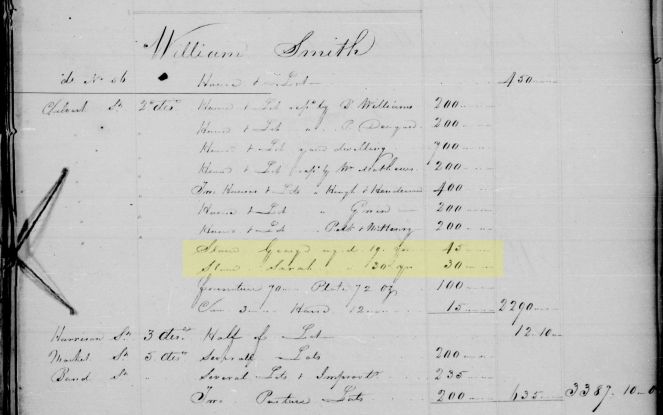 William Smith
do No 56 House & Lot 450
2d dist House & Lot by D Williams 200
House & Lot 200
House & Lot dwelling 700
House & Lot by Wm Mathews 200
Two Houses & Lots Hugh & Henderson 400
House & Lot Green 200
House & Lot 200
Slave George aged 19 yrs 45
Slave Sarah 20 yrs 30
furniture 70 Plate 72 oz 100
Cow 3 Horse 12 15 2290
Harrison St 3 dist Half of Lot 12.10
Market St 5 dist Several Lots 200
Bond St Several Lots & Improvts 235
Two Pasture Lots 200 635 3387.10.0